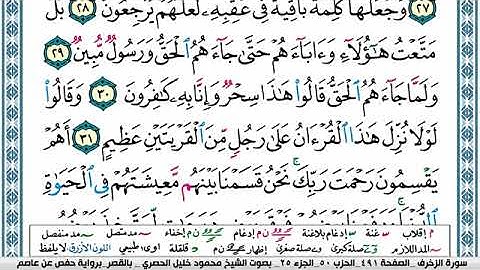 ٢٧ وَجَعَلَهَا كَلِمَةً بَاقِيَةً فِى عَقِبِهِۦ لَعَلَّهُمْ يَرْجِعُونَ ٢٨ بَلْ
مَتَّعْتُ هَٰٓؤُلَآءِ وَءَابَآءَهُمْ حَتَّىٰ جَآءَهُمُ ٱلْحَقُّ وَرَسُولٌ مُّبِينٌ ٢٩
وَلَمَّا جَآءَهُمُ ٱلْحَقُّ قَالُوا۟ هَٰذَا سِحْرٌ وَإِنَّا بِهِۦ كَٰفِرُونَ ٣٠ وَقَالُوا۟
لَوْلَا نُزِّلَ هَٰذَا ٱلْقُرْءَانُ عَلَىٰ رَجُلٍ مِّنَ ٱلْقَرْيَتَيْنِ عَظِيمٍ ٣١ أَهُمْ
يَقْسِمُونَ رَحْمَتَ رَبِّكَ ۚ نَحْنُ قَسَمْنَا بَيْنَهُم مَّعِيشَتَهُمْ فِى ٱلْحَيَوٰةِ
م إقلاب ـّ غنة إدغام بلاغنة ن م إدغام إخفاء مد متصل مد منفصل
المد اللازم صلة كبرى صلة صغرى إظهار ن م قلقلة اوى طبيعي اللون الأزرق لا يلفظ
سورة الزخرف . الصفحة ٤٩١ . الحزب ٥٠ . الجزء ٢٥ . بصوت الشيخ محمود خليل الحصري . بالقصر . برواية حفص عن عاصم